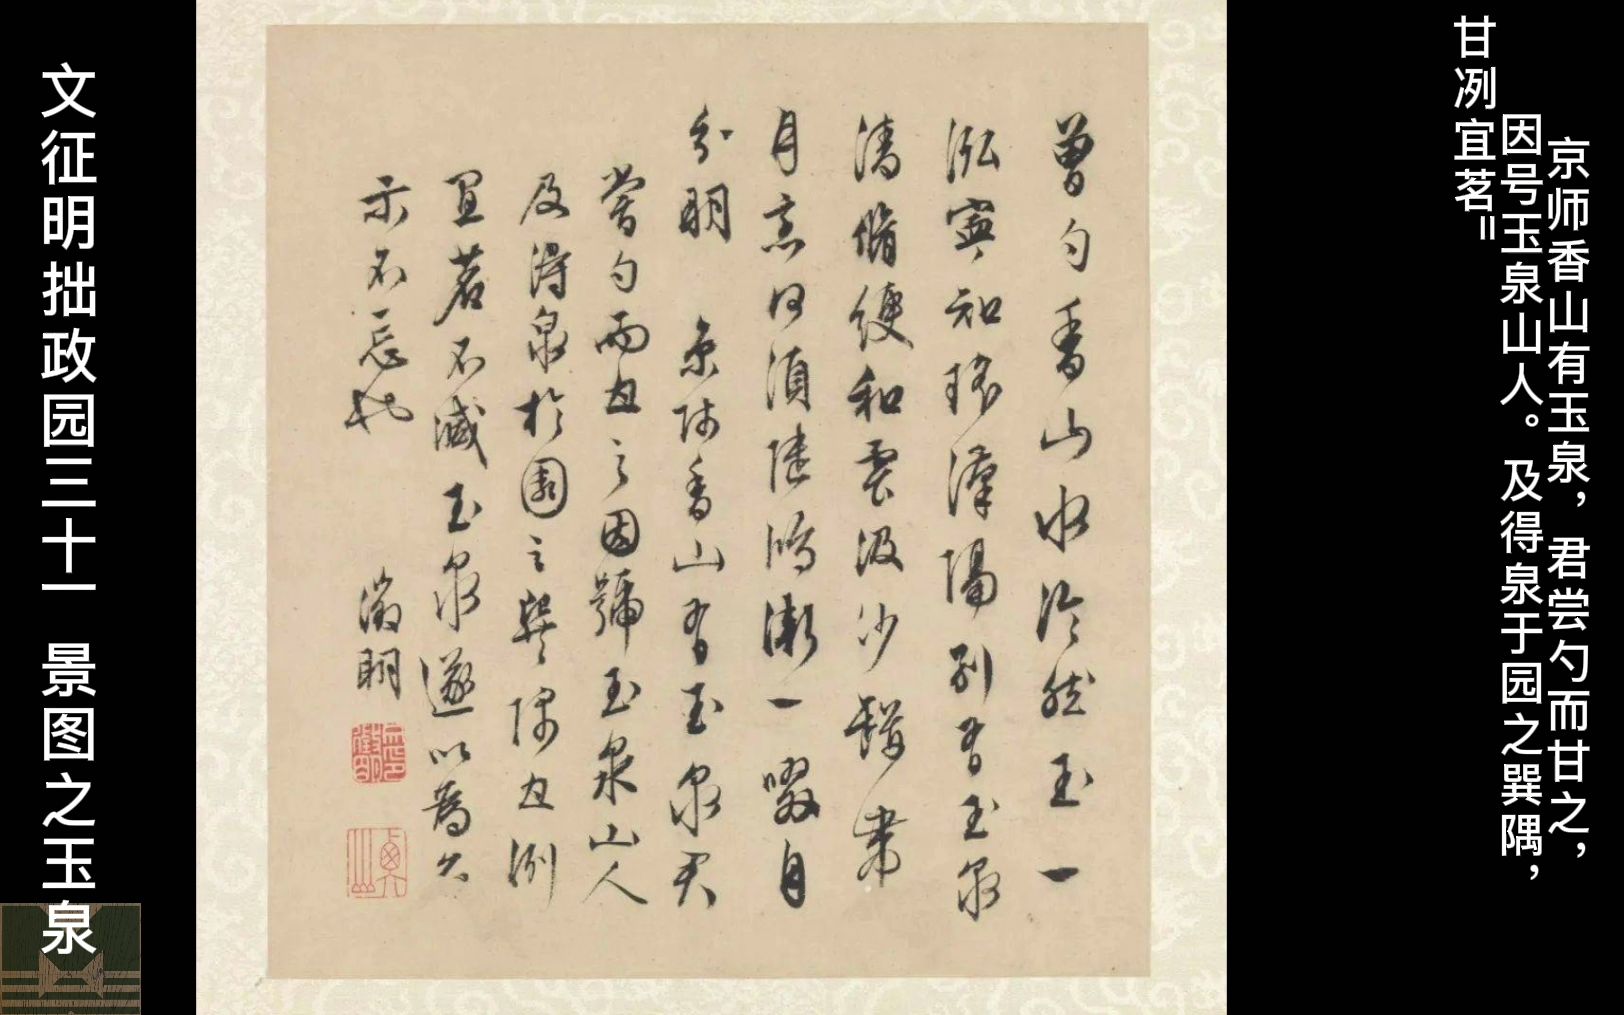 京师香山有玉泉，君尝勺而甘之，
因号玉泉山人。及得泉于园之巽隅，
甘冽宜茗=
曾勺香山水泠然玉一
泓寧知瑤漢隔別有玉泉
清脩綆和雲汲沙鐺帶
月烹何須陸鴻漸一啜自
分明 京師香山有玉泉君
嘗勺而甘之因號玉泉山人
及得泉於園之巽隅甘洌
宜茗不減玉泉遂以為名
示不忘也 徵明
文征明拙政园三十一 景图之玉泉